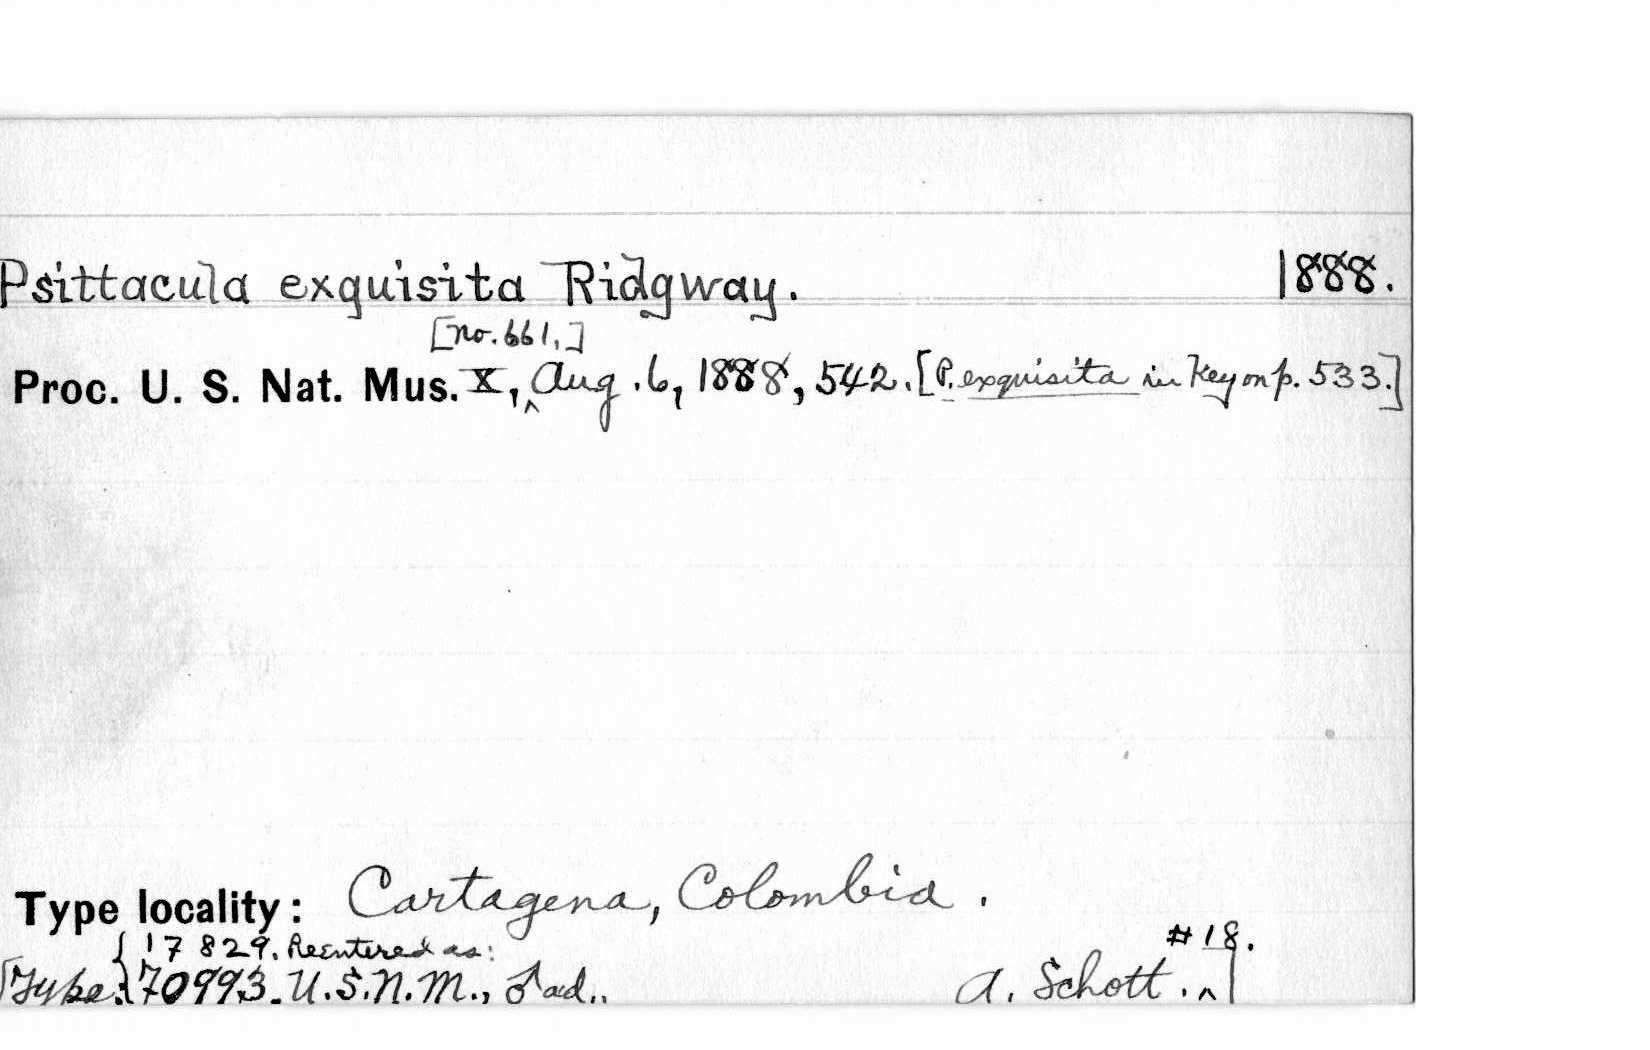 Psittacula exquisita Ridgway. 1888.
[no. 661.]
Proc. U. S. Nat. Mus. X, ‸ Aug. 6, 1888, 542. [P. exquisita in Key on p. 533.]
Type locality: Cartagena, Colombia.
{ 17829. Reentered as: #18.
[Type: } 70993. U.S.N.M., ♂ ad.. A. Schott. ‸ ]